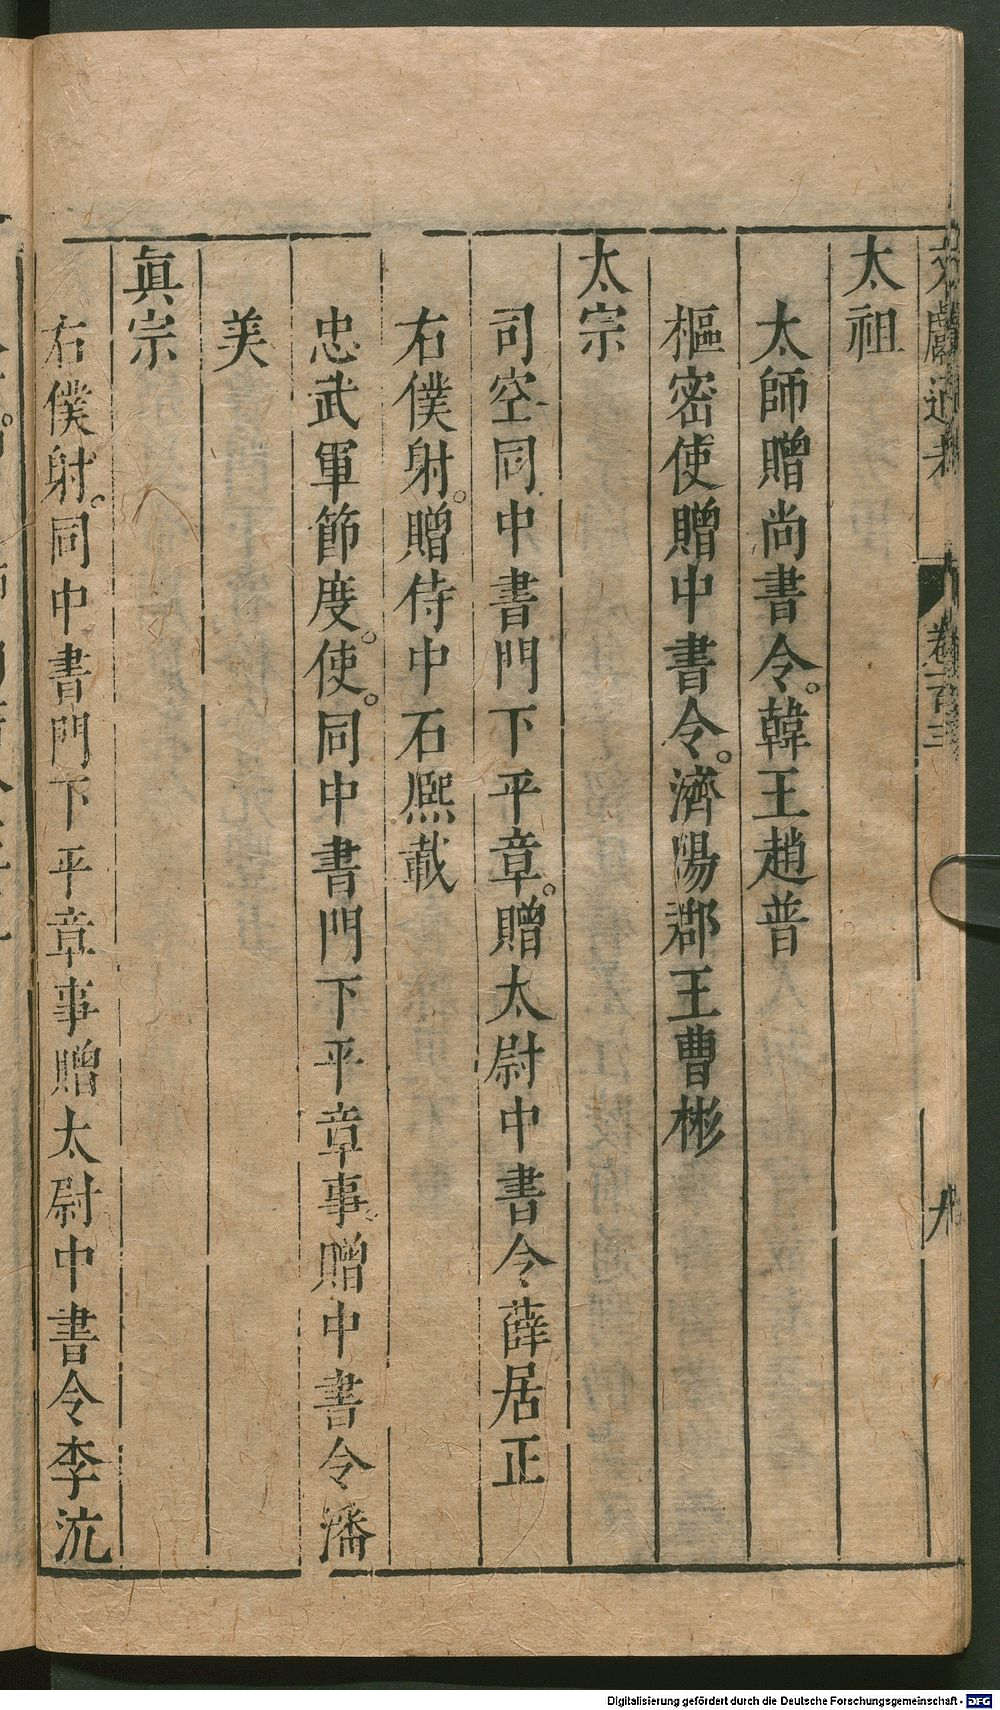 文獻通考 卷一百三 九
太祖
太師贈尚書令。韓王趙普
樞密使贈中書令。濟陽郡王曹彬
太宗
司空同中書門下平章。贈太尉中書令薛居正
右僕射。贈侍中石熈載
忠武軍節度。使。同中書門下平章事贈中書令潘
美
眞宗
右僕射。同中書門下平章事贈太尉中書令李沆
Digitalisierung gefördert durch die Deutsche Forschungsgemeinschaft - DFG